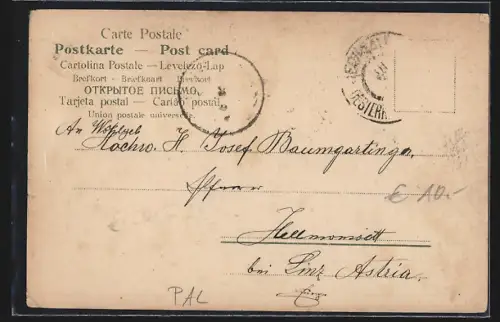 Carte Postale
Postkarte — Post card
Cartolina Postale — Levelező-Lap
Brefkort - Briefkaart - Brevkort
ОТКРЫТОЕ ПИСЬМО,
Tarjeta postal — Cartão postal
Union postale universelle
JERUSALEM
An Wohlgeb
Hochw. H. Josef Baumgartinger
Pfarrer
€ 10.-
Hellmonsött
bei Linz Astria
PAL